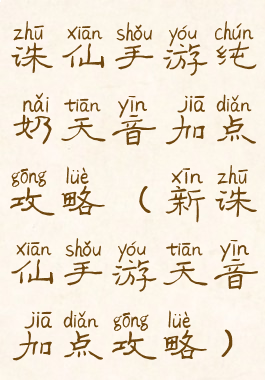 zhū xiān shǒu yóu chún
诛仙手游纯
nǎi tiān yīn jiā diǎn
奶天音加点
gōng lüè xīn zhū
攻略（新诛
xiān shǒu yóu tiān yīn
仙手游天音
jiā diǎn gōng lüè
加点攻略）